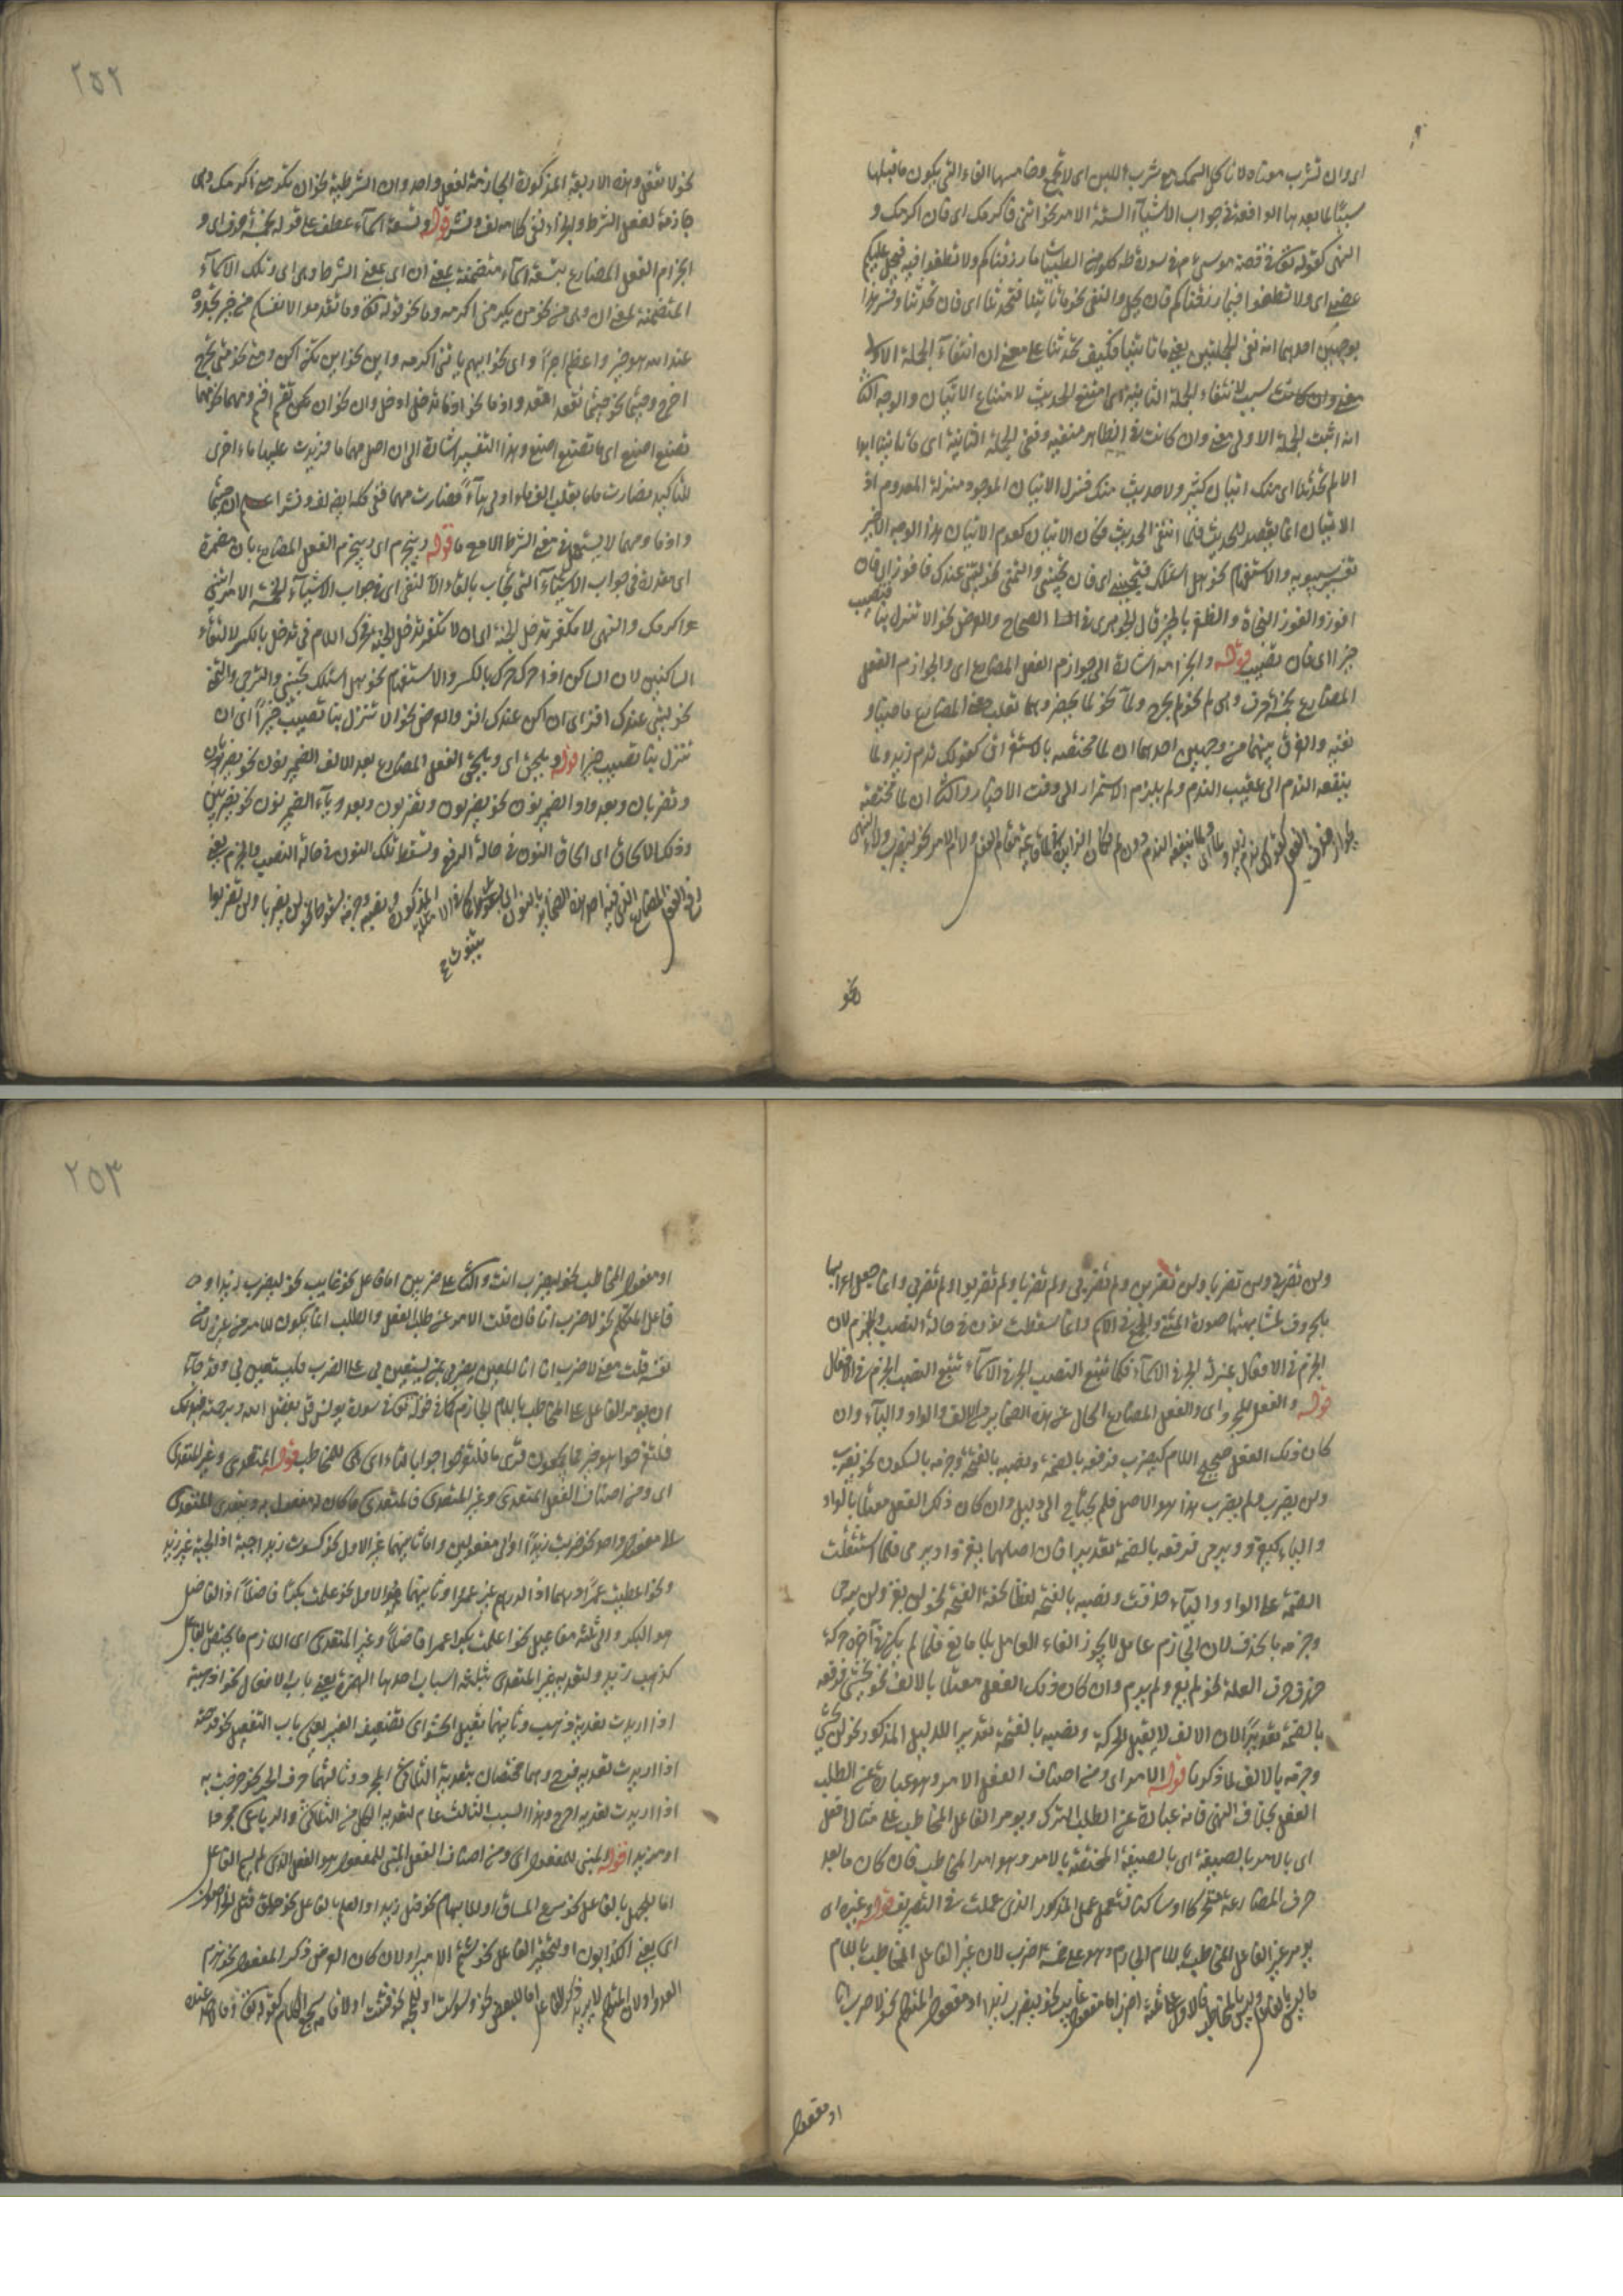 اى وان تشرب معناه لا تأكل السمك مع شرب اللبن اى لا تجمع وخامسها الفاء التى يكون ما قبلها
سببًا لما بعدها الواقعة فى جواب الاشيآء الستة الامر نحو ائتنى فاكرمك اى فان اكرمك و
النهى كقوله تعالى فى قصة موسى ع م فى سورة طه كلوا من الطيبات ما رزقناكم ولا تطغوا فيه فيحل عليكم
غضبى اى ولا تطغوا فيما رزقناكم فان يحل والنفى نحو ما تأتينا فتحدثنا اى فان تحدثنا وفسر هذا
بوجهين احدهما انه نفى الجملتين يعنى ما تأتينا فكيف تحدثنا على معنى ان انتفآء الجملة الاولى
معنى وان كانت سبب لانتفاء الجملة الثانية اى امتنع الحديث لامتناع الاتيان والوجه الثانى
انه اثبت الجملة الاولى معنى وان كانت فى الظاهر منفية ونفى الجملة الثانية اى ما تأتينا ابدا
الا لم تحدثنا اى منك اتيان كثير ولا حديث منك فنزل الاتيان الموجود منزلة المعدوم اذ
الاتيان انما يقصد للحديث فلما انتفى الحديث فكان الاتيان كعدم الاتيان هذا الوجه الاخير
تفسير سيبويه والاستفهام نحو هل اسئلك فتجيبنى اى فان تجيبنى والتمنى نحو ليتنى عندك فافوز اى فان
افوز والفوز النجاة والظفر بالخير قال الجوهرى فى الصحاح والعرض نحو الا تنزل بنا فتصيب
خيرا اى فان تصيب قوله وانجزامه اشارة الى جوازم الفعل المضارع اى والجوازم الفعل
المضارع بخمسة احرف وهى لم نحو لم يخرج ولمآ نحو لما يحضر وهما تقلب معنى المضارع ماضيا و
نفيه والفرق بينهما من وجهين احدهما ان لما مختصة بالاستغراق كقولك ندم زيد ولما
ينفعه الندم اى عقيب الندم ولم يلزم الاستمرار الى وقت الاخبار والثانى ان لما مختصة
بجواز حذف الفعل كقولك ندم زيد ولما اى ولما ينفعه الندم ولام الامر نحو ليضرب ولاء النهى
نحو
٢٥٢
نحو لا تفعل وهذه الاربعة المذكورة الجازمة لفعل واحد وان الشرطية نحو ان تكرمنى اكرمك وهى
جازمة لفعل الشرط والجزاء ففى كلامه لف ونشر قوله وتسعة اسمآء عطف على قوله بخمسة احرف اى و
انجزام الفعل المضارع بتسعة اسمآء متضمنة معنى ان اى معنى الشرط وهى اى وتلك الاسمآء
المتضمنة لمعنى ان وهى من نحو من يكرمنى اكرمه وما نحو قوله تعالى وما تقدموا لانفسكم من خير تجدوه
عند الله هو خيرا واعظم اجرًا واى نحو ايهم يأتنى اكرمه واين نحو اين تكن اكن ومتى نحو متى تخرج
اخرج وحيثما نحو حيثما تقعد اقعد واذما نحو اذما تدخل ادخل وان نحو ان يكن تقم اقم ومهما نحو مهما
تصنع اصنع اى ما تصنع اصنع وهذا التفسير اشارة الى ان اصل مهما ما فزيدت عليها ماء اخرى
للتأكيد فصارت ماما بقلب الف ما الاولى هاءً فصارت مهما ففى كله ايضا لف ونشر اعلم ان حيثما
واذما ومهما لا يستعمل فى معنى الشرط الا مع ما قوله وينجزم اى وينجزم الفعل المضارع بان مضمرة
اى مقدرة فى جواب الاشيآء التى تجاب بالفاء الا النفى اى فى جواب الاشيآء الخمسة الامر ائتنى
اكرمك والنهى لا تكفر تدخل الجنة اى ان لا تكفر تدخل الجنة وحرك اللام فى تدخل بالكسر لالتقاء
الساكنين لان الساكن اذا حرك حرك بالكسر والاستفهام نحو هل اسئلك تجيبنى والترجى والتمنى
نحو ليتنى عندك افز اى ان اكن عندك افز والعرض نحو الا تنزل بنا تصيب خيرًا اى ان
تنزل بنا تصيب خيرا قوله ويلحق اى ويلحق الفعل المضارع بعد الالف الضمير نون نحو يضربان
وتضربان وبعد واو الضمير نون نحو يضربون وتضربون وبعد ياء الضمير نون نحو تضربين
وذلك الالحاق اى الحاق النون فى حالة الرفع وتسقط تلك النون فى حالة النصب والجزم يعنى
٢٥٣
ولن تضربى ولن تضربا ولن تضربن ولم تضربى ولم تضربا ولم تضربوا ولم تضربى وانما جعل اعرابها
بالحروف لمشابهتها صورة المثنى والجمع فى الاسم وانما سقطت نون فى حالة النصب والجزم لان
الجزم فى الافعال بمنزلة الجر فى الاسمآء فكما تتبع النصب الجر فى الاسمآء تتبع النصب الجزم فى الافعال
قوله والفعل المجرد اى والفعل المضارع الخالى عن هذه الضمائر وهى الالف والواو واليآء وان
كان ذلك الفعل صحيح اللام كيضرب فرفعه بالضمة ونصبه بالفتحة وجزمه بالسكون نحو يضرب
ولن يضرب ولم يضرب هذا هو الاصل فلم يحتاج الى دليل وان كان ذلك الفعل معتلا بالواو
والياء كيغزو ويرمى فرفعه بالضمة تقديرا فان اصلهما يغزو ويرمى فلما استثقلت
الضمة على الواو واليآء حذفت ونصبه بالفتحة لفظا لخفة الفتحة نحو لن يغزو ولن يرمى
وجزمه بالحذف لان الجازم عامل لا يجوز الغاء العامل بلا مانع فلما لم يكن فى آخره حركة
حذف حرف العلة نحو لم يغز ولم يرم وان كان ذلك الفعل معتلا بالالف نحو يخشى فرفعه
بالضمة تقديرًا لان الالف لا يقبل الحركة ونصبه بالفتحة تقديرا للدليل المذكور نحو لن يخشى
وجزمه بالالف لما ذكرنا قوله الامر اى ومن اصناف الفعل الامر وهو عبارة عن الطلب
الفعل بخلاف النهى فانه عبارة عن الطلب الترك ويومر الفاعل المخاطب على مثال افعل
اى بالامر بالصيغة اى بالصيغة المختصة بالامر وهو امر المخاطب فان كان ما بعد
حرف المضارعة متحركا او ساكنا فتعمل عمل المذكور الذى عملت فى التصريف قوله وغيره اى
يومر غير الفاعل المخاطب باللام الجازم وهو على خمسة اضرب لان غير الفاعل المخاطب باللام
او مفعول
او مفعول المخاطب نحو ليضرب انت والثانى على ضربين اما فاعل نحو غايب نحو ليضرب زيد او
فاعل المتكلم نحو لاضرب انا فان قلت الامر عن طلب الفعل والطلب انما يكون للامر من غيره لا من
نفسه قلت معنى لاضرب انا
ان يومر الفاعل على المخاطب باللام الجازم كما فى قوله تعالى فى سورة يونس قل بفضل الله وبرحمته فبذلك
فلتفرحوا هو خير مما يجمعون قرئ فلتفرحوا جوابا بالتاء اى على المخاطب قوله المتعدى وغير المتعدى
اى ومن اصناف الفعل المتعدى وغير المتعدى فالمتعدى ما كان له مفعول به ويتعدى المتعدى
الى مفعول واحد نحو ضربت زيدًا او الى مفعولين واما ثانيهما غير الاول نحو كسوت زيدا جبة اذ الجبة غير زيد
ونحو اعطيت عمرًا درهما اذ الدرهم غير عمرو او ثانيهما هو الاول نحو علمت بكرًا فاضلاً اذ الفاضل
هو البكر والى ثلثة مفاعيل نحو اعلمت بكرا عمرا فاضلاً وغير المتعدى اى اللازم ما يختص بالفاعل
كذهب زيد ولتعدية غير المتعدى بثلثة اسباب احدها الهمزة يعنى باب الافعال نحو اذهبته
اذا اردت تعدية ذهب وثانيها تثقيل الحشو اى تضعيف العين يعنى باب التفعيل نحو فرحته
اذا اردت تعدية فرح وهما مختصان بتعدية الثلاثى المجرد وثالثها حرف الجر نحو خرجت به
اذا اردت تعدية خرج وهذا السبب الثالث عام لتعدية الكل من الثلاثى والرباعى مجردا
او مزيدا قوله والمبنى للمفعول اى ومن اصناف الفعل المبنى للمفعول هو الفعل الذى لم يسم الفاعل
اما للجهل بالفاعل نحو سرق المتاع او للابهام نحو قتل زيد او للعلم بالفاعل نحو خلق قتل الخراصون
اى يعنى الكذابون او لتحقير الفاعل نحو شتم الامير او لان كان الغرض ذكر المفعول نحو هزم
العدو او لان المتكلم لا يريد ذكر الفاعل